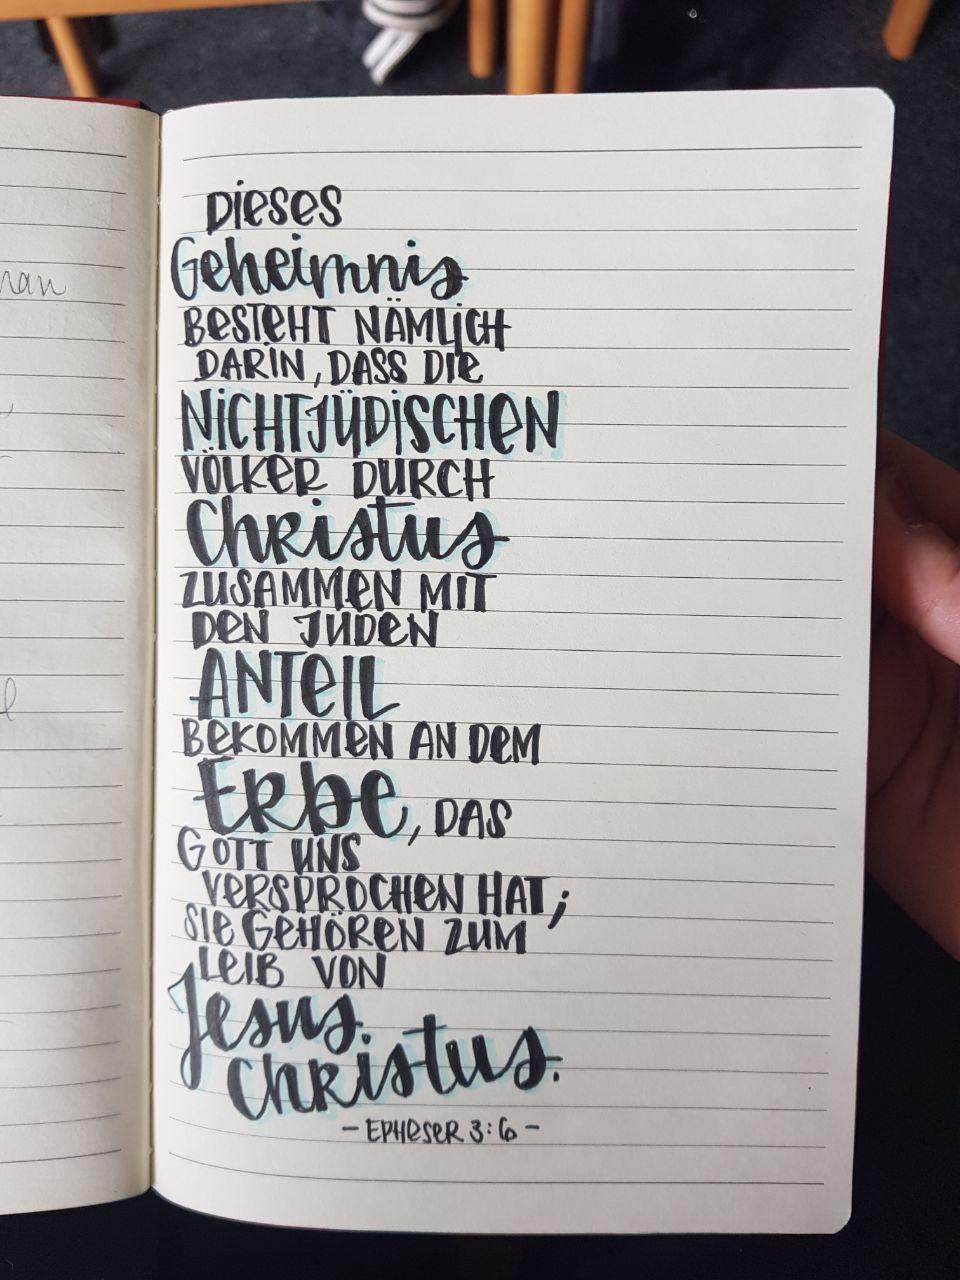 Dieses
Geheimnis
besteht nämlich
darin, dass die
nichtjüdischen
Völker durch
Christus
zusammen mit
den Juden
Anteil
bekommen an dem
Erbe, das
Gott uns
versprochen hat;
sie gehören zum
Leib von
Jesus
Christus.
- Epheser 3:6 -